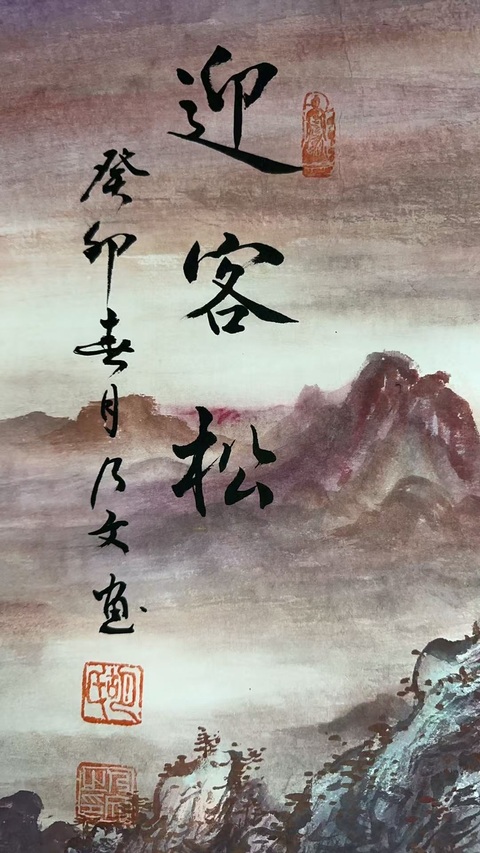 迎客松
癸卯春月乃文画